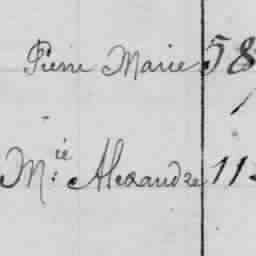 Pierre Marie 58
M.ie Alexandre 11